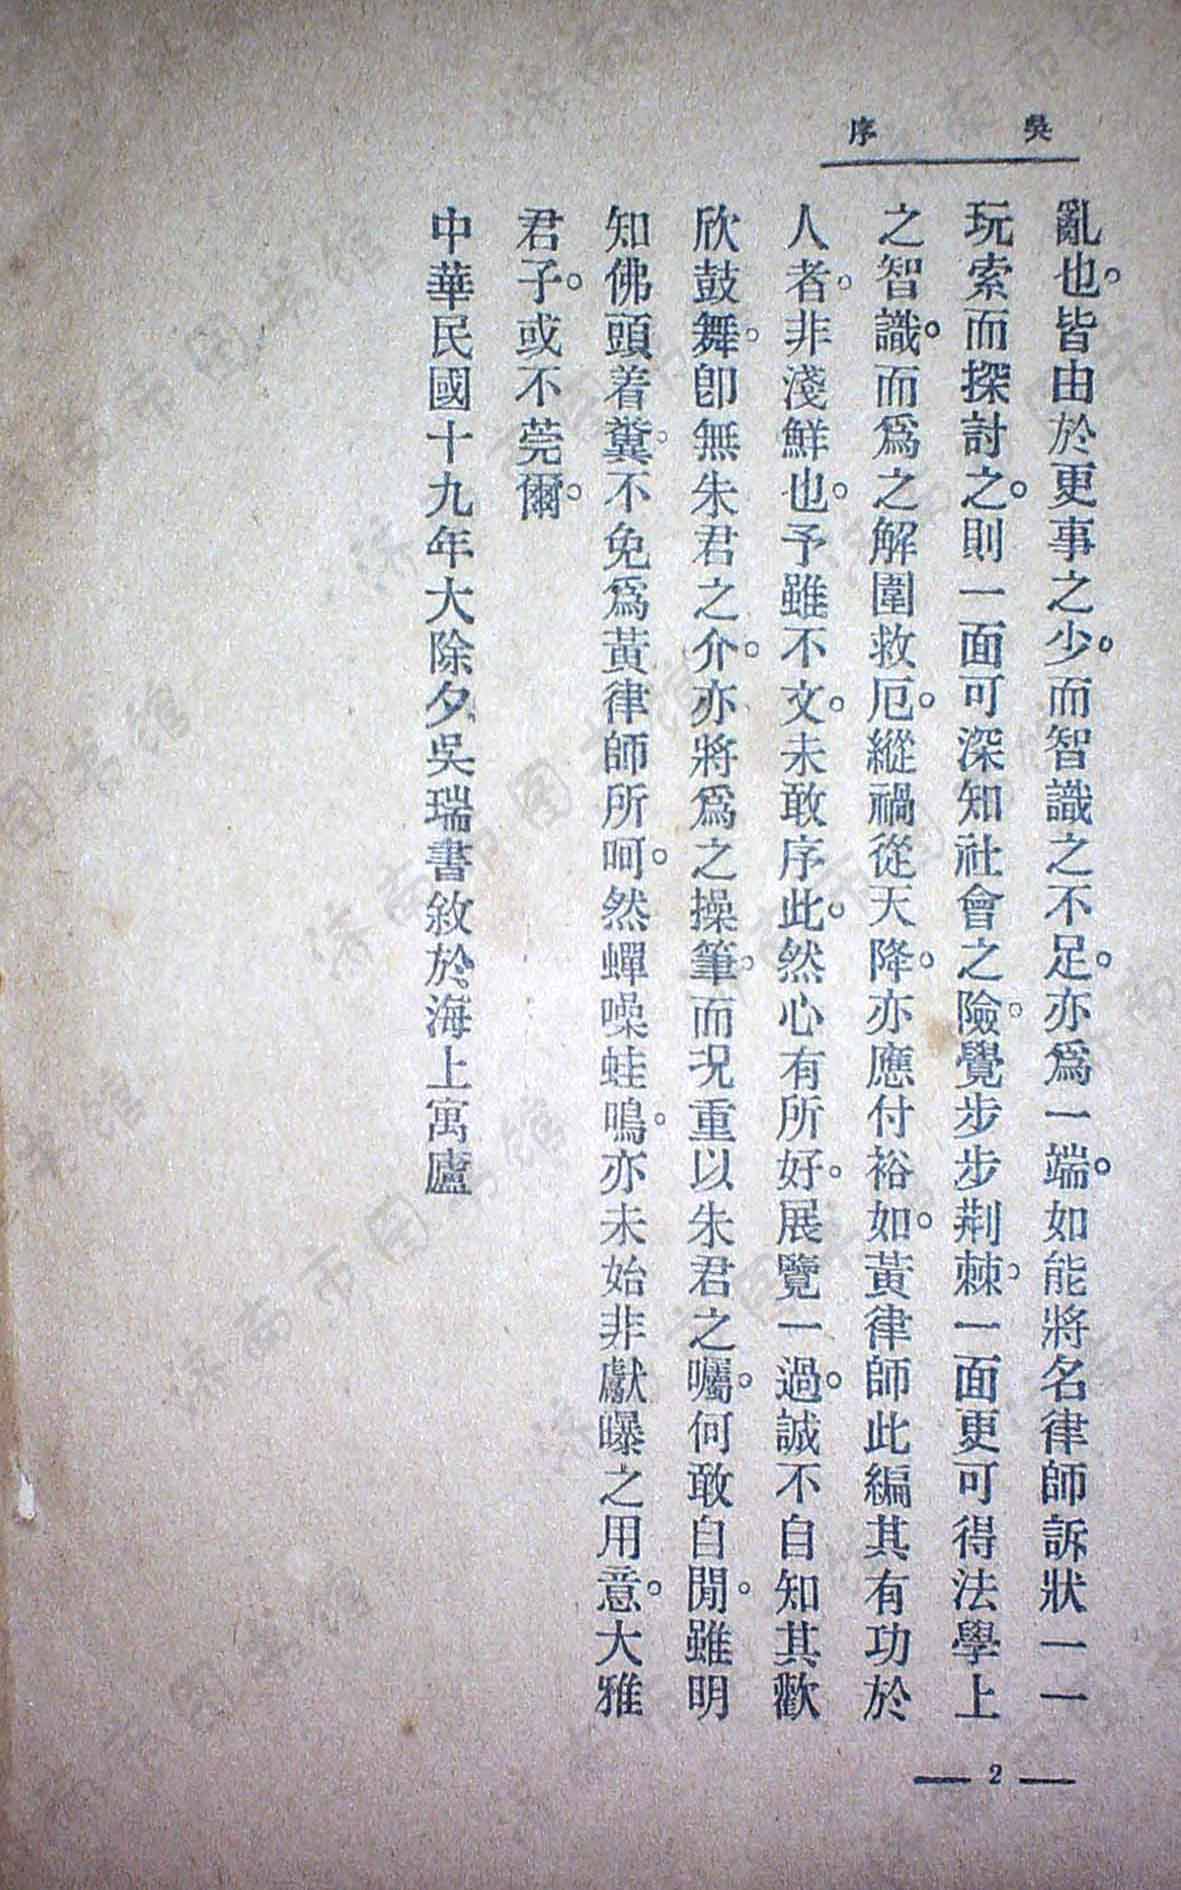 吳序
亂也。皆由於更事之少。而智識之不足。亦爲一端。如能將名律師訴狀一一
玩索而探討之。則一面可深知社會之險。覺步步荆棘。一面更可得法學上
之智識。而爲之解圍救厄。縱禍從天降。亦應付裕如。黃律師此編其有功於
人者。非淺鮮也。予雖不文。未敢序此。然心有所好。展覽一過。誠不自知其歡
欣鼓舞。卽無朱君之介。亦將爲之操筆。而况重以朱君之囑。何敢自閒。雖明
知佛頭着糞。不免爲黃律師所呵。然蟬噪蛙鳴。亦未始非獻曝之用意。大雅
君子。或不莞爾。
中華民國十九年大除夕、吳瑞書敘於海上寓廬
— 2 —
济南市图书馆